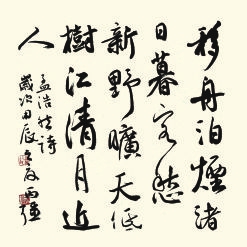 移舟泊煙渚
日暮客愁
新野曠天低
樹江清月近
人
孟浩然詩
歲次甲辰